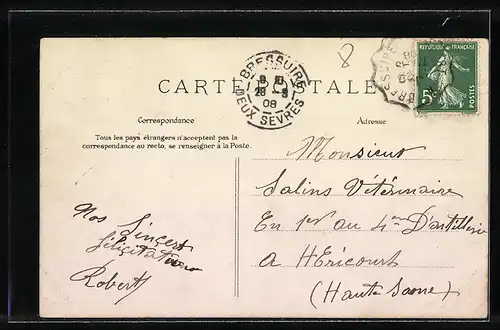 8
BRESSUIRE
28 - 9
08
DEUX SEVRES
BRESSUIRE
REPUBLIQUE FRANÇAISE
5c
POSTES
CARTE POSTALE
Correspondance
Adresse
Tous les pays étrangers n'acceptent pas la
correspondance au recto, se renseigner à la Poste.
Nos Sincères
félicitations
Robert
Monsieur
Salins Vétérinaire
En 1er au 4me D'artillerie
A HÉricourt
(Haute Saone)